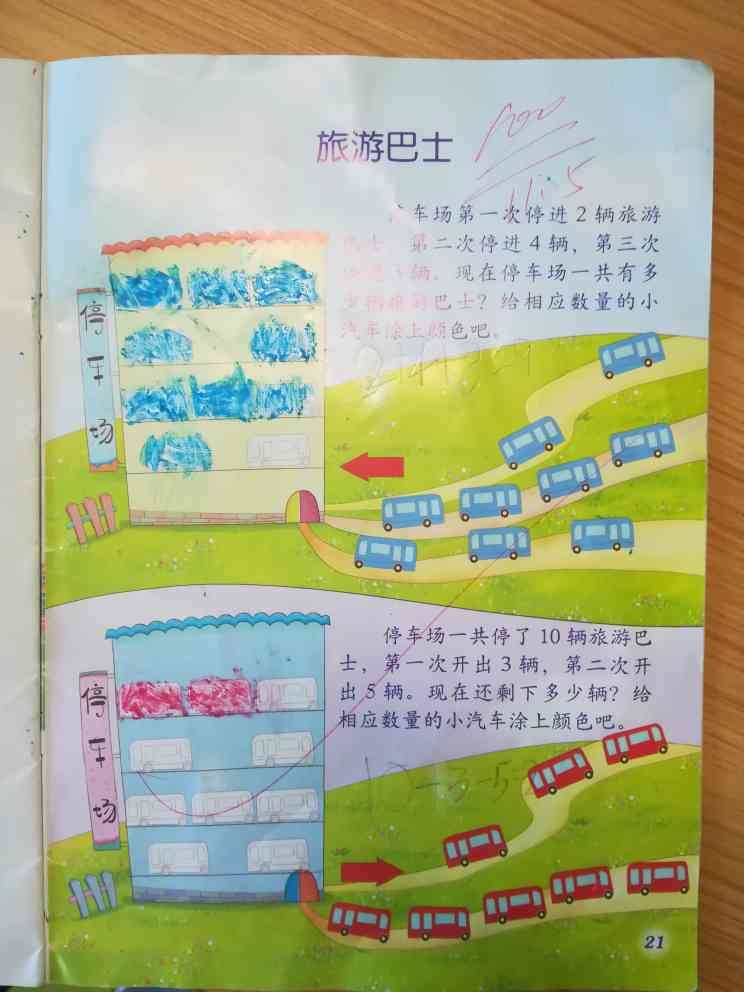 旅游巴士
100
11.5
汽车场第一次停进2辆旅游
巴士,第二次停进4辆,第三次
停进3辆。现在停车场一共有多
少辆旅游巴士?给相应数量的小
汽车涂上颜色吧。
2+4+3=9
停车场
停车场一共停了10辆旅游巴
士,第一次开出3辆,第二次开
出5辆。现在还剩下多少辆?给
相应数量的小汽车涂上颜色吧。
10-3-5=2
停车场
21